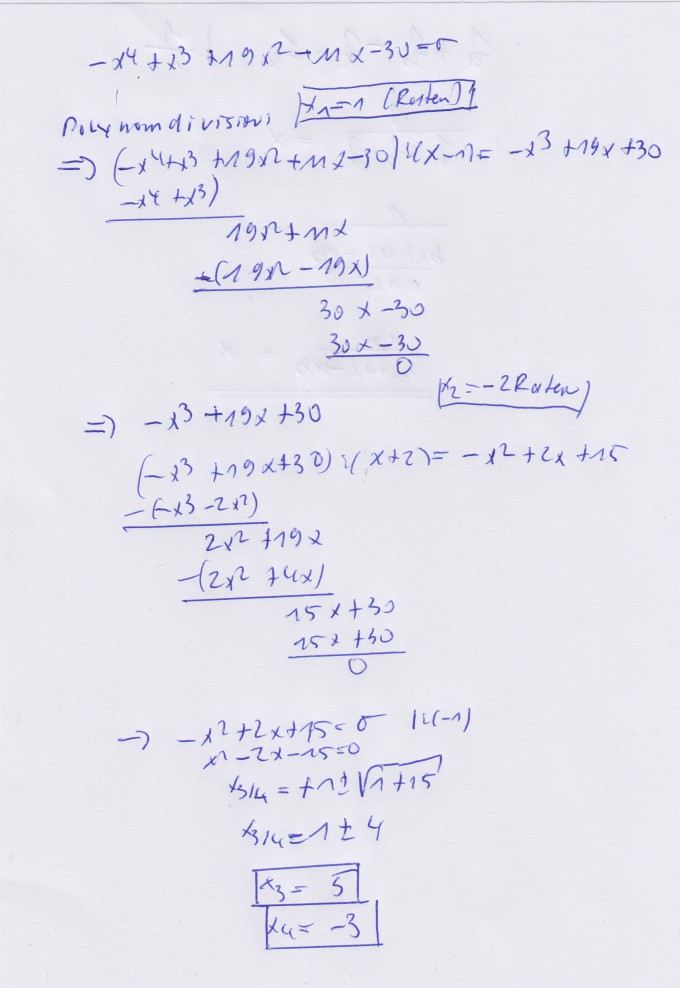 -x⁴ + x³ + 19x² + 11x - 30 = 0
Polynomdivision: x₁ = 1 (Raten)
=> (-x⁴ + x³ + 19x² + 11x - 30) : (x - 1) = -x³ + 19x + 30
-x⁴ + x³)
19x² + 11x
-(19x² - 19x)
30x - 30
30x - 30
0
x₂ = -2 Raten)
=> -x³ + 19x + 30
(-x³ + 19x + 30) : (x + 2) = -x² + 2x + 15
-(-x³ - 2x²)
2x² + 19x
-(2x² + 4x)
15x + 30
15x + 30
0
-> -x² + 2x + 15 = 0 | : (-1)
x² - 2x - 15 = 0
x3/4 = +1 ± √1 + 15
x3/4 = 1 ± 4
x₃ = 5
x₄ = -3